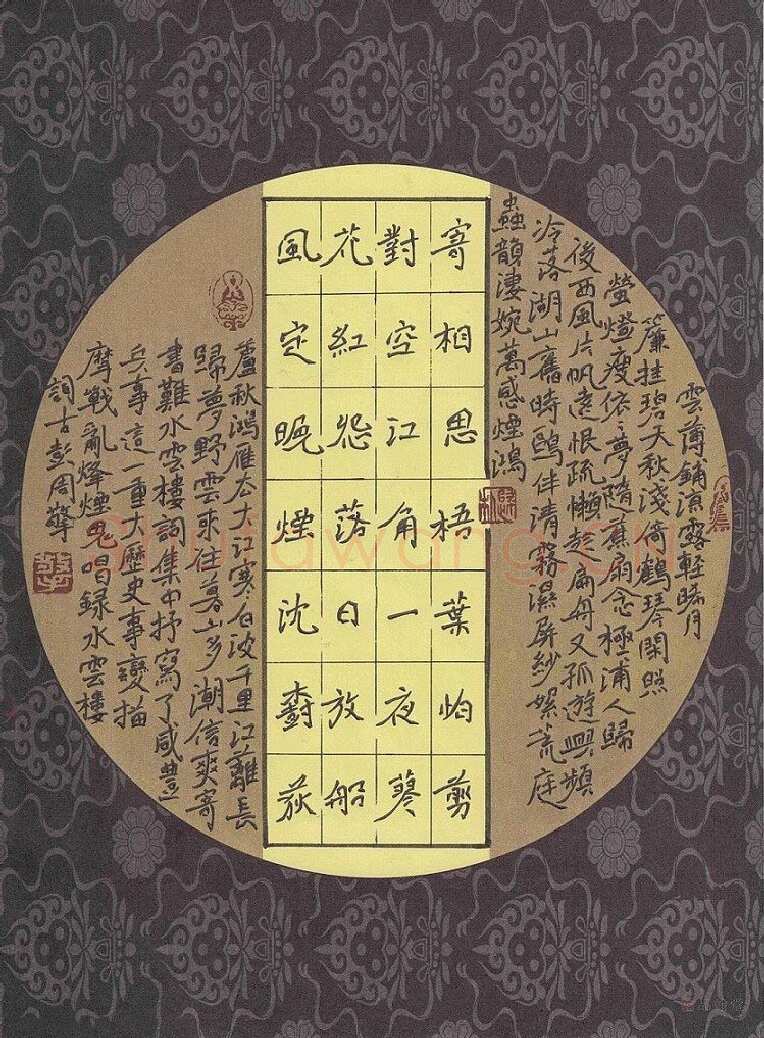 雲薄鋪涼露輕月
簾挂碧天秋淺倚鶴琴閑照
螢燈瘦依夢隨蕉扇念極浦人歸
後西風片帆遠恨疏懶趁扁舟又孤遊興頻
冷落湖山舊時鷗伴清霧濕屏紗絮荒庭
蟲韻淒婉萬感煙鴻
寄相思梧葉怕剪
對空江角一夜蓼
花紅怨落日放船
風定晚煙沈荻
蘆秋鴻雁大江寒白波千里江蘺長
歸夢野雲來往暮山多潮信爽寄
書難水雲樓詞集中抒寫了咸豐
兵事這一重大歷史事變描
摩戰亂烽煙鬼唱録水雲樓
詞古彭周擎
shufawang.cn